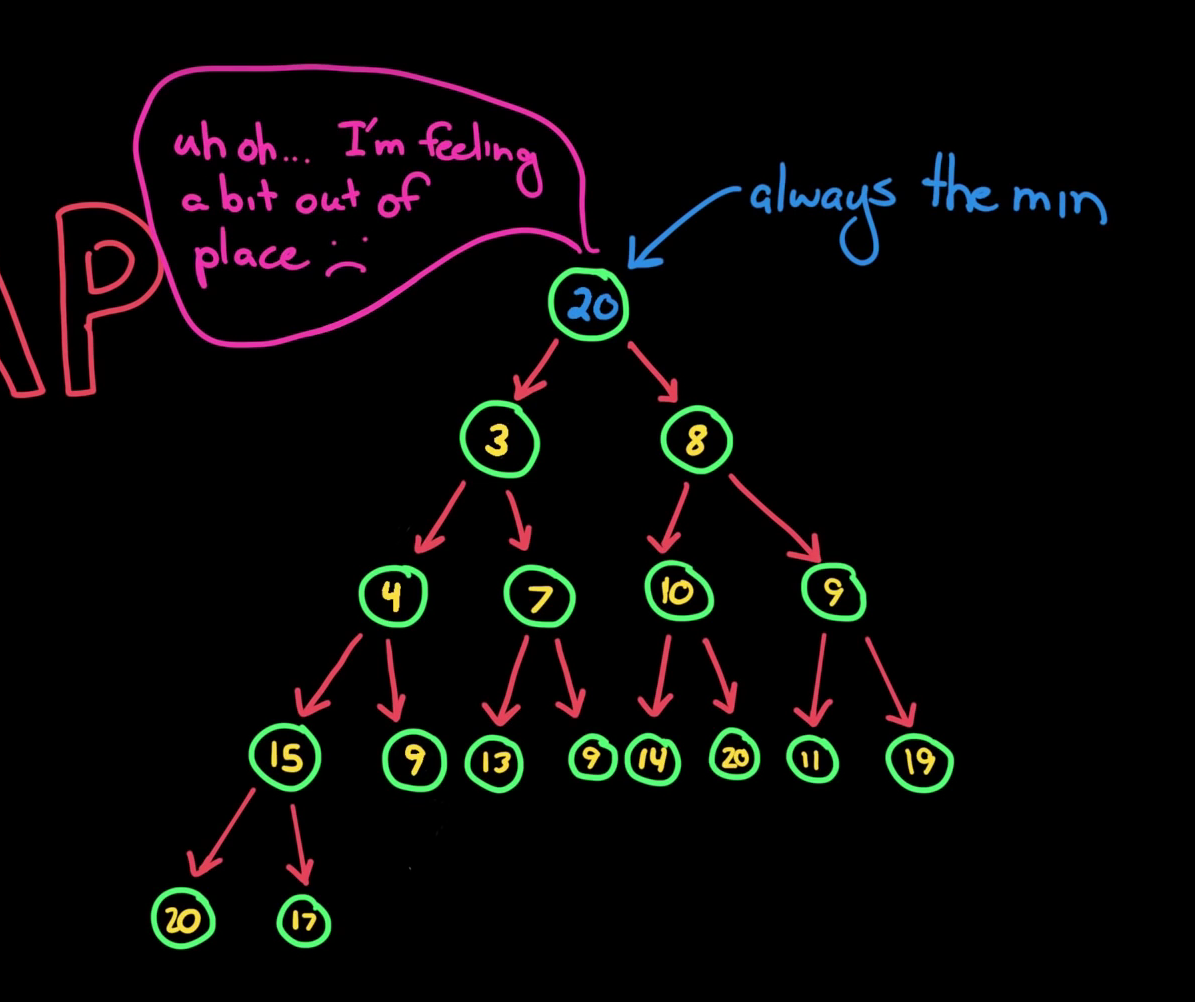 uh oh... I'm feeling
a bit out of
place :(
always the min
AP
20
3 8
4 7 10 9
15 9 13 9 14 20 11 19
20 17